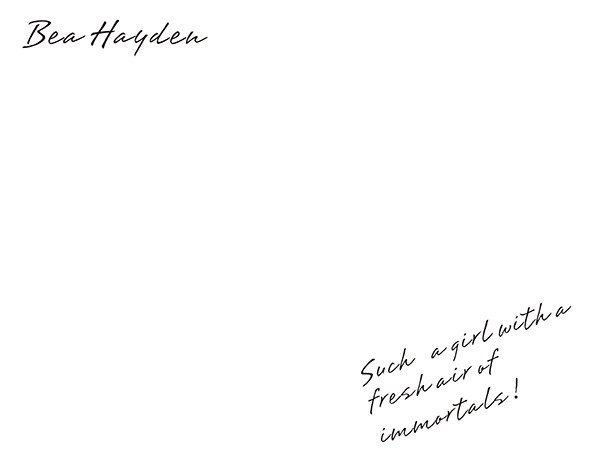 Bea Hayden
Such a girl with a
fresh air of
immortals!